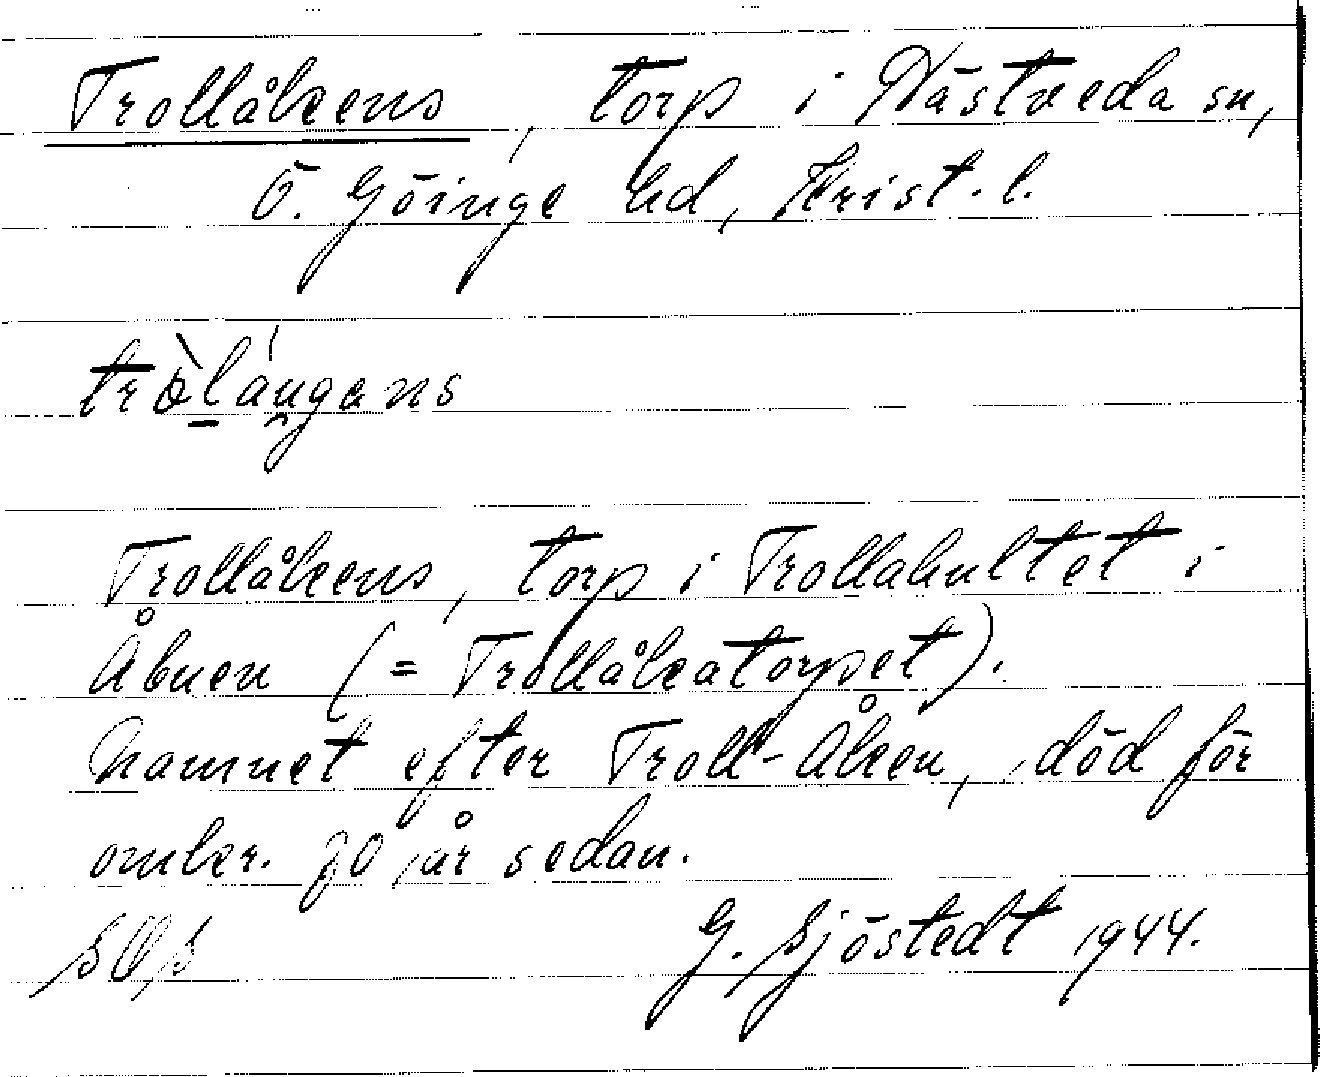 Trollåkens, torp i Hästveda sn,
Ö. Göinge hd, Krist. l.
Trollåkens, torp i Trollahultet i
Åbuen (= Trollåkatorpet).
Namnet efter Troll-Åken, död för
omkr. 70 år sedan.
G. Sjöstedt 1944.